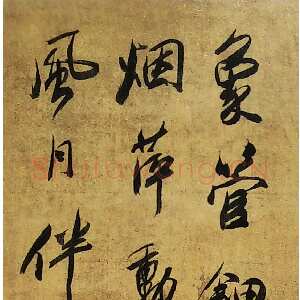 象管鈿
烟萍動
風月伴